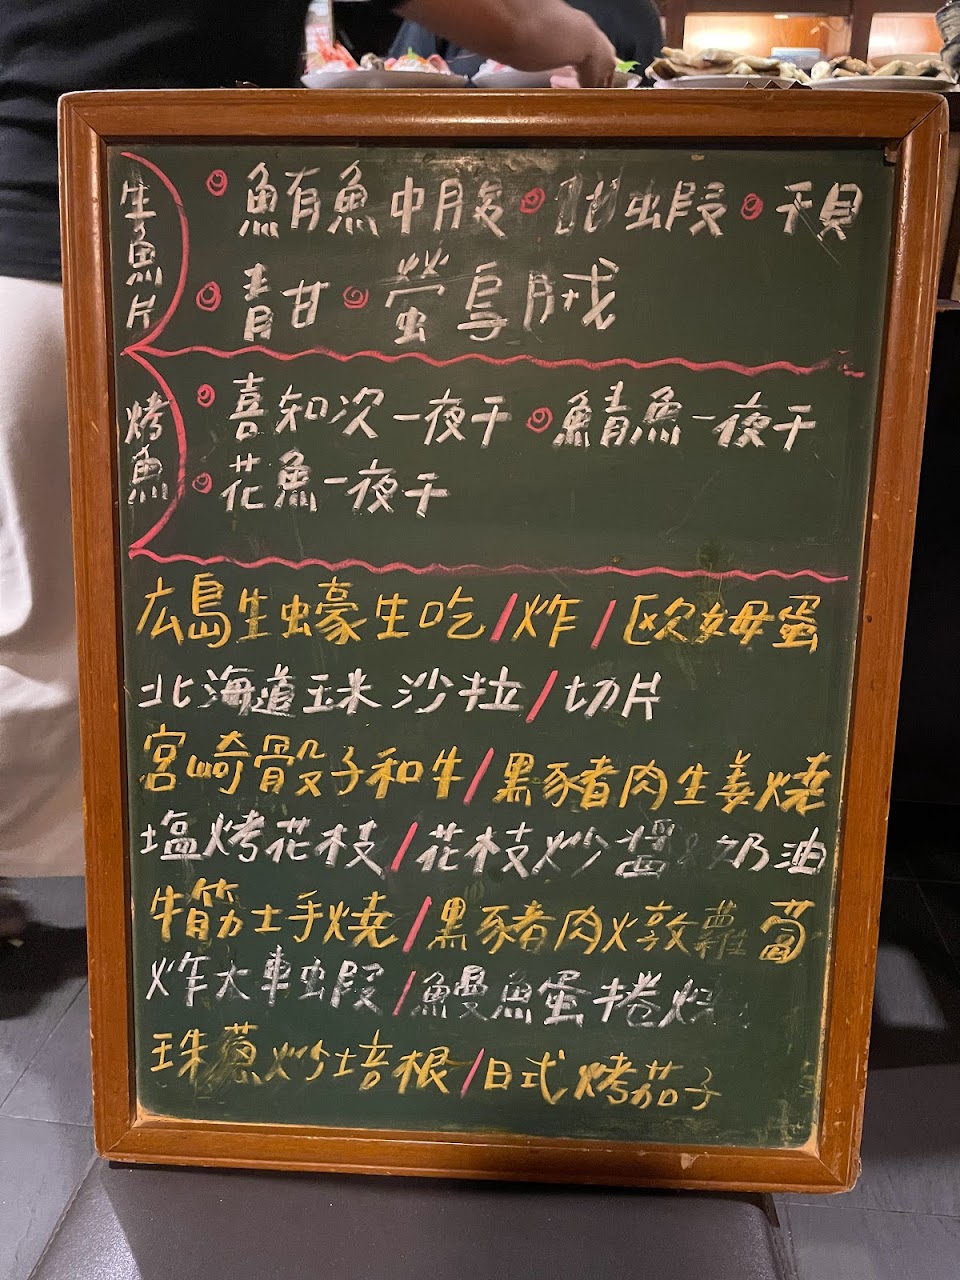 生魚片
鮪魚中腹 蝦 干貝
青甘 螢烏賊
烤魚
喜知次一夜干 鯖魚一夜干
花魚一夜干
広島生蠔生吃/炸/歐姆蛋
北海道玉米沙拉/切片
宮崎骰子和牛/黑豬肉生姜燒
塩烤花枝/花枝炒醬奶油
牛筋土手燒/黑豬肉燉蘿蔔
炸大車蝦/鰻魚蛋捲燒
珠蔥炒培根/日式烤茄子